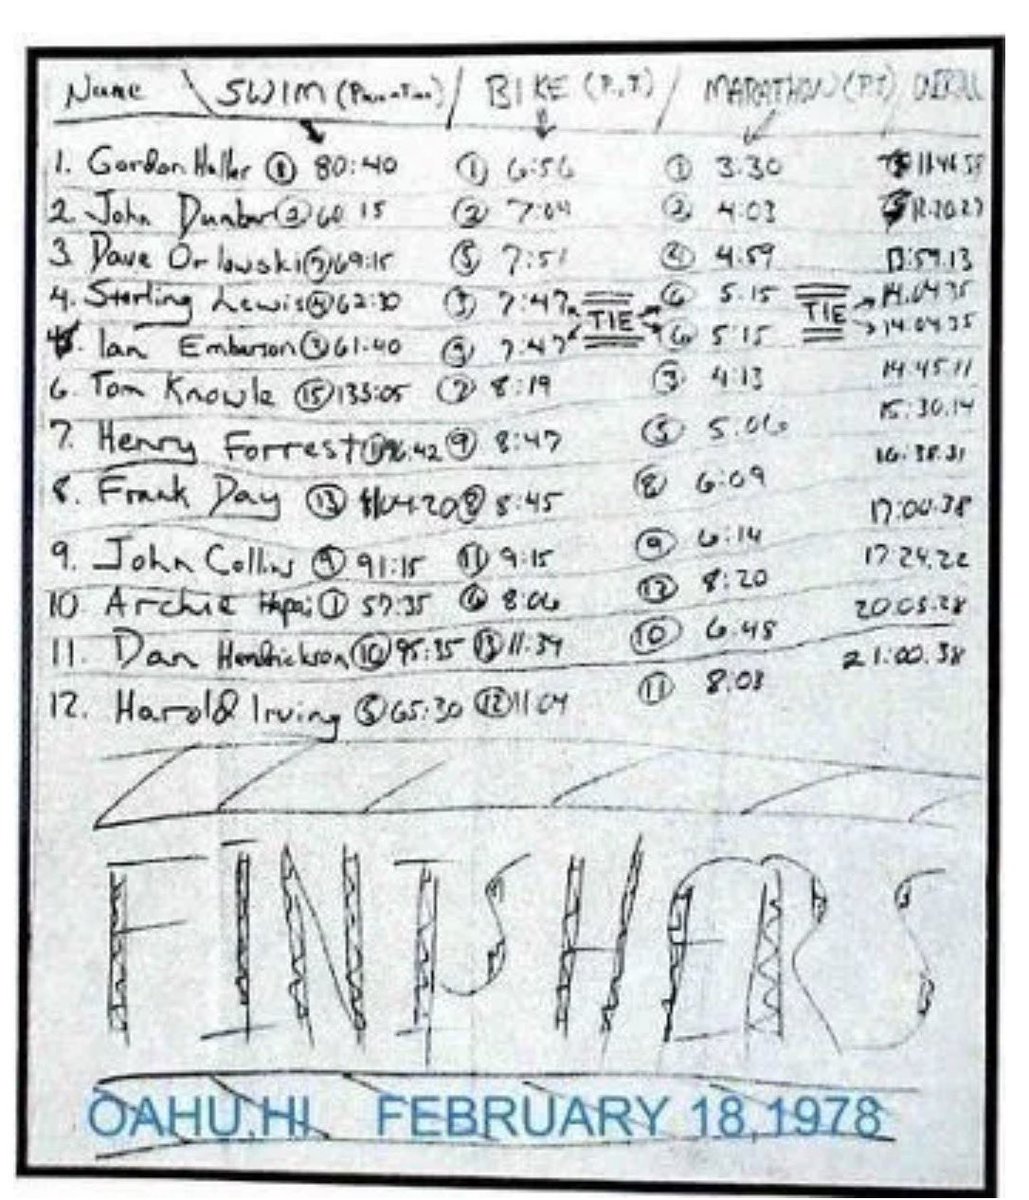 Name SWIM (Place-Time) / BIKE (P.,T) / MARATHON (P,T) / OVERALL
1. Gordon Haller ⑧ 80:40 ① 6:56 ① 3:30 11:46:58
2. John Dunbar ② 60 15 ② 7:04 ② 4:03 12:20:27
3 Dave Orlowski 69:15 ⑤ 7:51 ④ 4:59 13:59.13
4. Sterling Lewis ④ 62:30 ③ 7:47 TIE ⑥ 5.15 TIE 14.04 35
Ian Emberson ③ 61:40 ③ 7:47 ⑥ 5:15 14:04 35
6. Tom Knowle ⑮ 135:05 8:19 ③ 4:13 14:45:11
7. Henry Forrest 96:42 ⑨ 8:47 ⑤ 5:06 15:30.14
8. Frank Day ⑬ 1:04:20 ⑧ 8:45 ⑧ 6:09 16:38.31
9. John Collins ⑨ 91:15 ⑪ 9:15 ⑨ 6:14 17:00:38
10. Archie Hapai ① 57:35 ⑥ 8:06 ⑫ 8:20 17:24.22
11. Dan Hendrickson ⑩ 95:35 ⑬ 11:39 ⑩ 6:48 20:03:28
12. Harold Irving ⑤ 65:30 ⑫ 11:04 ⑪ 8:03 21:00.38
FINISHERS
OAHU,HI FEBRUARY 18,1978